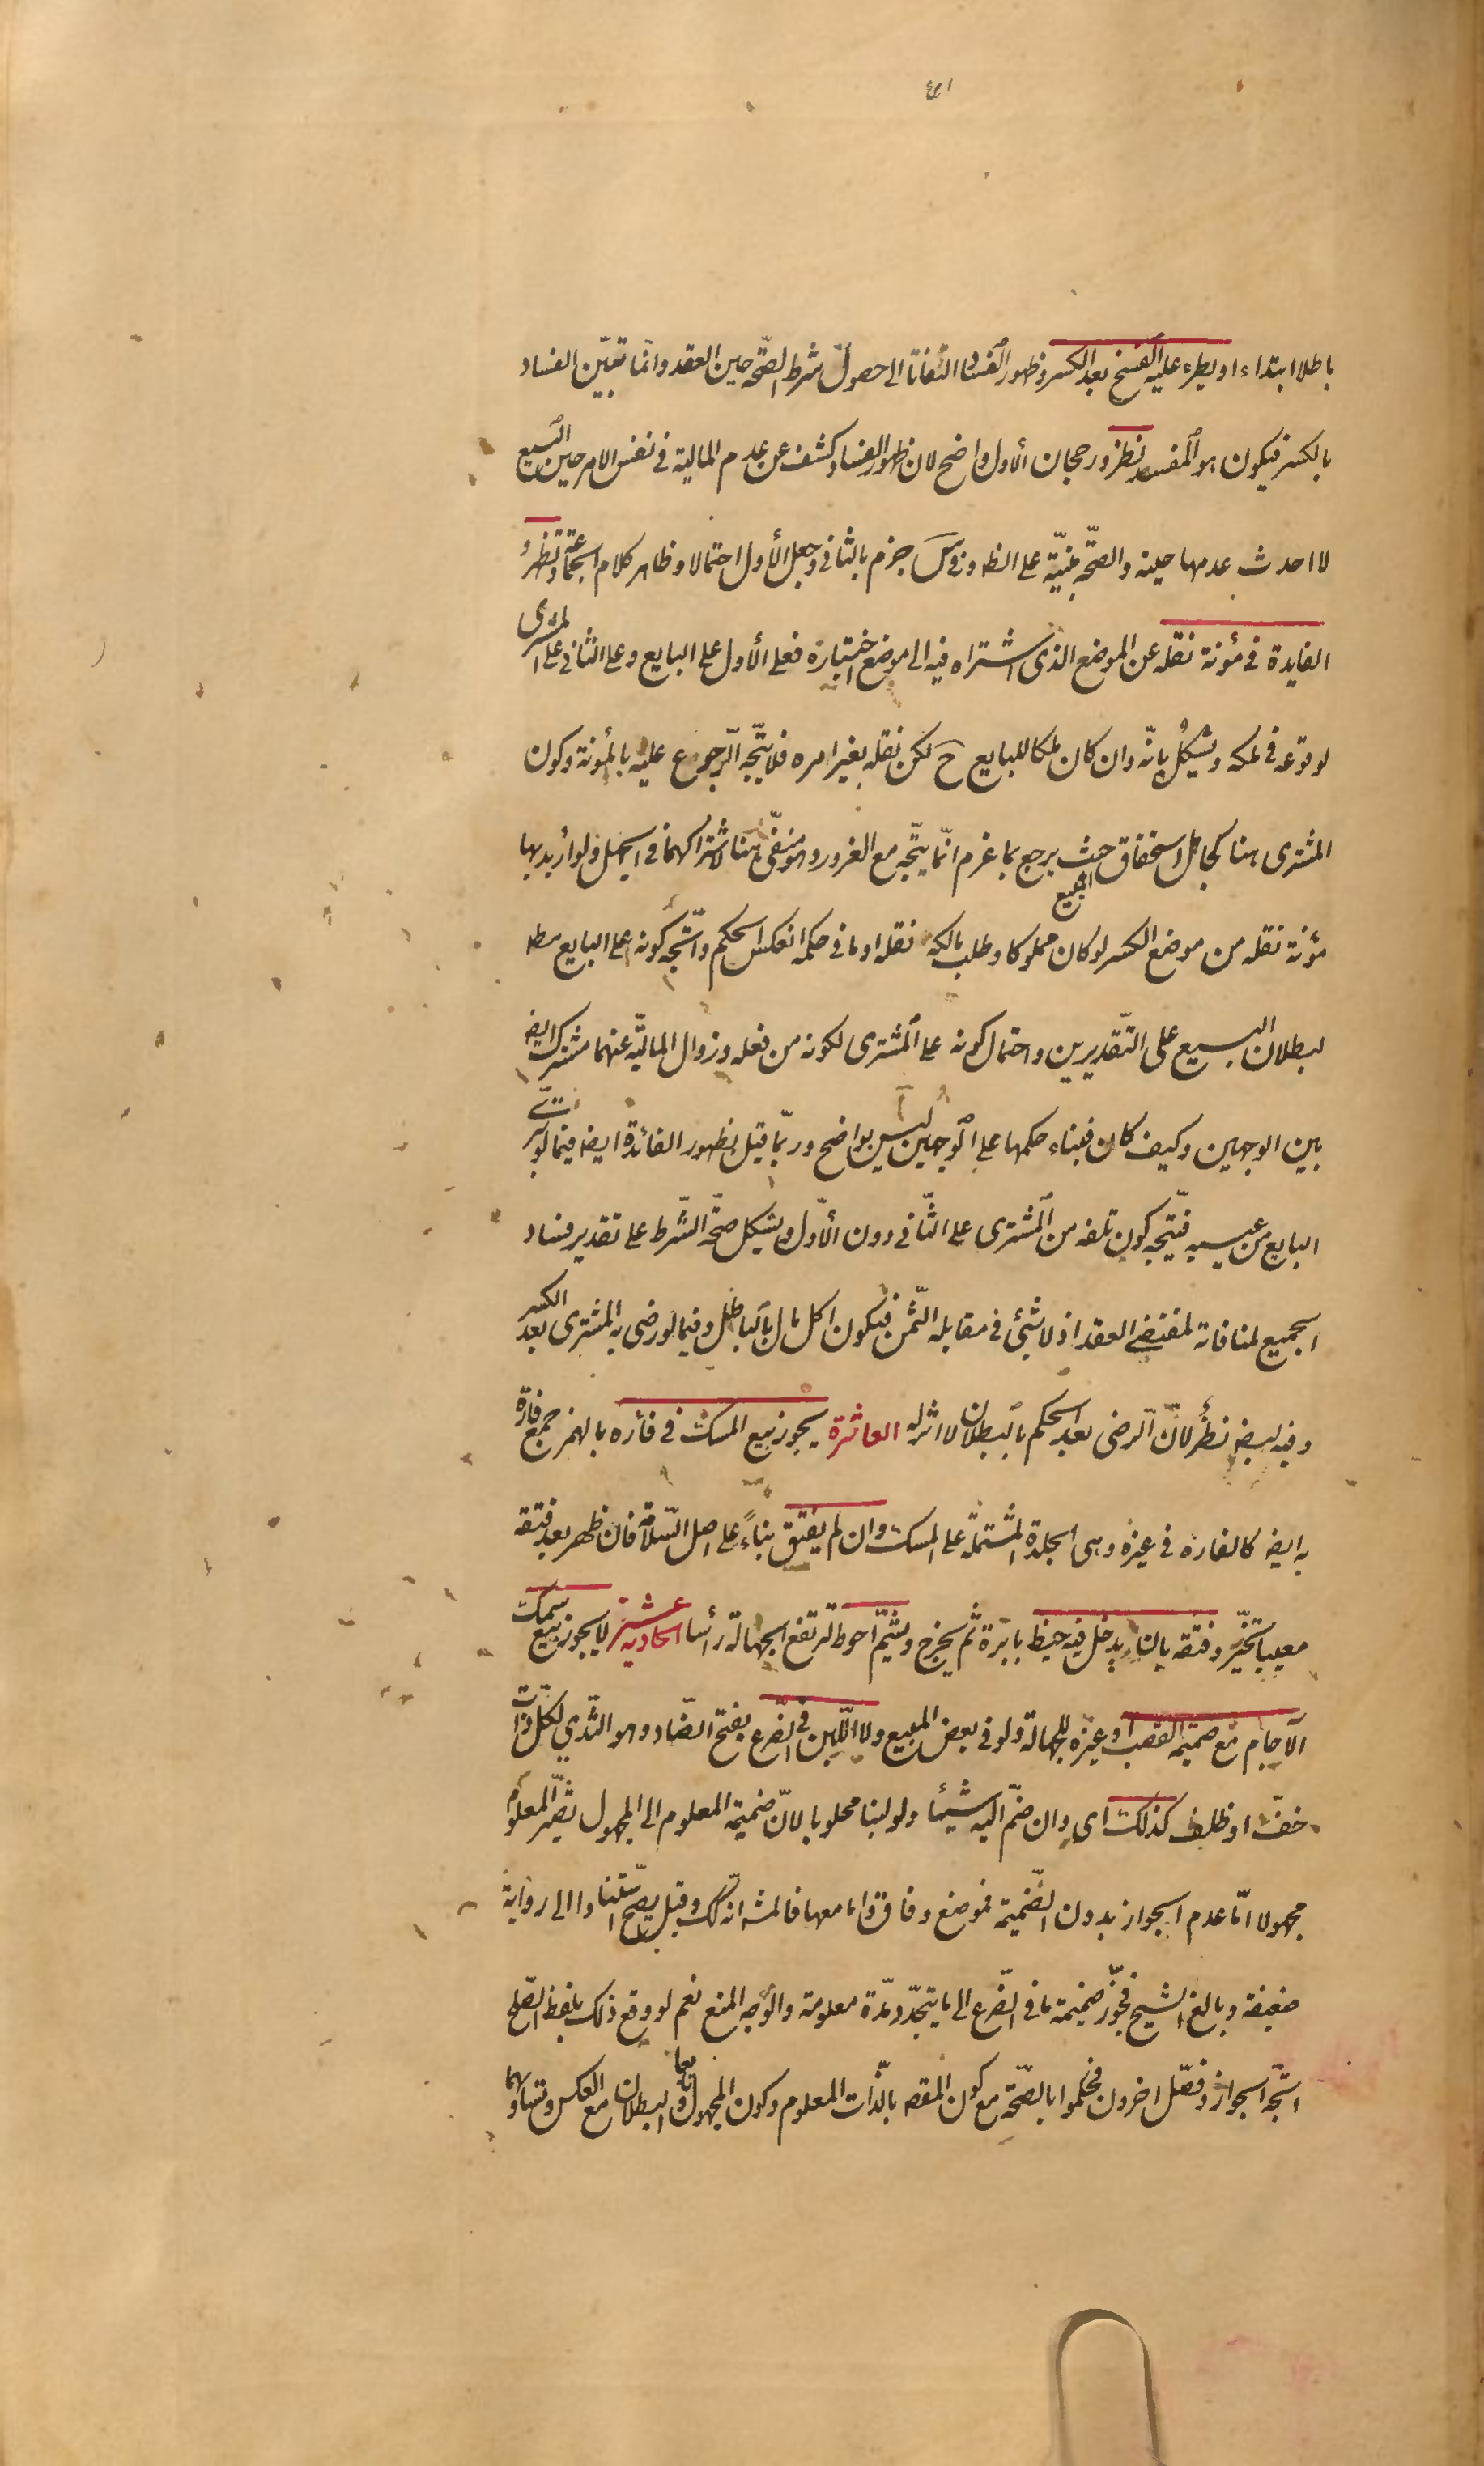 باطلا ابتداء او يطرء عليه الفسخ بعد الكسر و ظهور الفساد التفاتا الى حصول شرط الصحّة حين العقد وانّما تبيّن الفساد
بالكسر فيكون هو المفسد نظر ورجحان الأول واضح لان ظهور الفساد كشف عن عدم المالية فى نفس الامر حين البيع
لا احدث عدمها حينه والصحّة مبنيّة على الظ وفى س جزم بالثانى وجعل الأول احتمالا وظاهر كلام الجماعة وتظهر
الفايدة فى مؤنة نقله عن الموضع الذى اشتراه فيه الى موضع اختباره فعلى الأول على البايع وعلى الثانى على المشترى
لوقوعه فى ملكه ويشكل بانّه وان كان ملكا للبايع ح لكن نقله بغير امره فلا يتّجه الرّجوع عليه بالمؤنة وكون
المشترى هنا كجاهل استحقاق المبيع حيث يرجع بما غرم انّما يتّجه مع الغرور وهو منفىّ هنا لاشتراكهما فى الجهل ولو أريد بها
مؤنة نقله من موضع الكسر لو كان مملوكا وطلب مالكه نقله او ما فى حكمه انعكس الحكم واتّجه كونه على البايع مطلقا
لبطلان البيع على التّقديرين واحتمال كونه على المشترى لكونه من فعله وزوال الماليّة عنهما مشترك ايض
بين الوجهين وكيف كان فبناء حكمها على الوجهين ليس بواضح وربّما قيل بظهور الفائدة ايض فيما لو تبرّى
البايع من عيبه فيتّجه كون تلفه من المشترى على الثّانى دون الأوّل ويشكل صحّة الشّرط على تقدير فساد
الجميع لمنافاته لمقتضى العقد اذ لا شىء فى مقابلة الثّمن فيكون اكل مال بالباطل وفيما لو رضى به المشترى بعد الكسر
وفيه ايض نظر لانّ الرضى بعد الحكم بالبطلان لا اثر له العاشرة يجوز بيع المسك فى فأره بالهمز جمع فأرة
به ايض كالفاره فى غيره وهى الجلدة المشتملة على المسك وان لم يفتق بناءً على اصل السّلامة فان ظهر بعد فتقه
معيبا تخيّر وفتقه بان يدخل فيه خيط بابرة ثم يخرج ويشمّ احوط لترتفع الجهالة رأسا الحادية عشرة لا يجوز بيع سمك
الآجام مع ضميمة القصب او غيره للجهالة ولو فى بعض المبيع ولا اللّبن فى الضّرع بفتح الضّاد وهو الثّدى لكل ذات
خفّ او ظلف كذلك اى وان ضمّ اليه شيئا ولو لبنا محلوبا لانّ ضميمة المعلوم الى المجهول تصيّر المعلوم
مجهولا امّا عدم الجواز بدون الضّميمة فموضع وفاق وامّا معها فالمش انّه كك وقيل يصحّ استنادا الى رواية
ضعيفة وبالغ الشيخ فجوّز ضميمة ما فى الضّرع الى ما يتجدّد مدّة معلومة والوجه المنع نعم لو وقع ذلك بلفظ الصّلح
اتّجه الجواز وفصّل اخرون فحكموا بالصّحّة مع كون المقص بالذّات المعلوم وكون المجهول تابعا والبطلان مع العكس وتساويهما